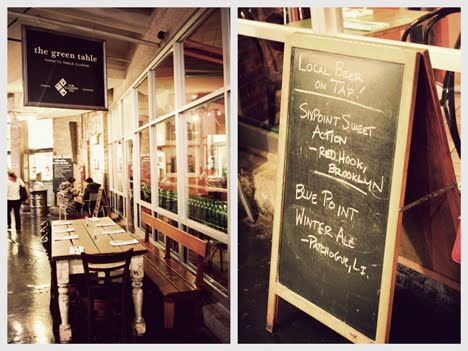 the green table
FARM TO TABLE CUISINE
LOCAL BEER
ON TAP!
SIXPOINT SWEET
ACTION
- RED HOOK,
BROOKLYN
BLUE POINT
WINTER ALE
- PATCHOGUE, L.I.